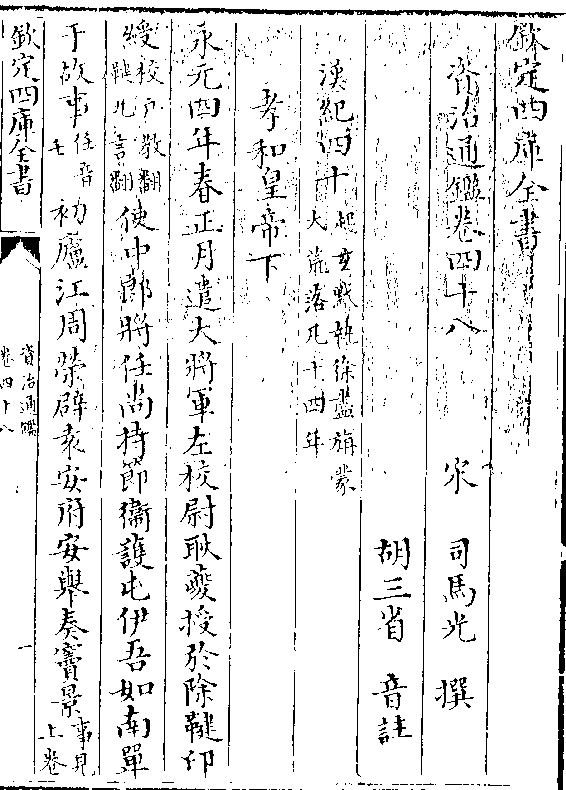 欽定四庫全書
資治通鑑卷四十八
宋 司馬光 撰
胡三省 音註
漢紀四十起玄黓執徐盡旃蒙大荒落凡十四年
孝和皇帝下
永元四年春正月遣大將軍左校尉耿夔授於除鞬印
綬校戶敎翻鞬九言翻使中郎將任尚持節衛護屯伊吾如南單
于故事任音壬初廬江周榮辟袁安府安舉奏竇景事見上卷
欽定四庫全書
資治通鑑
卷四十八
一